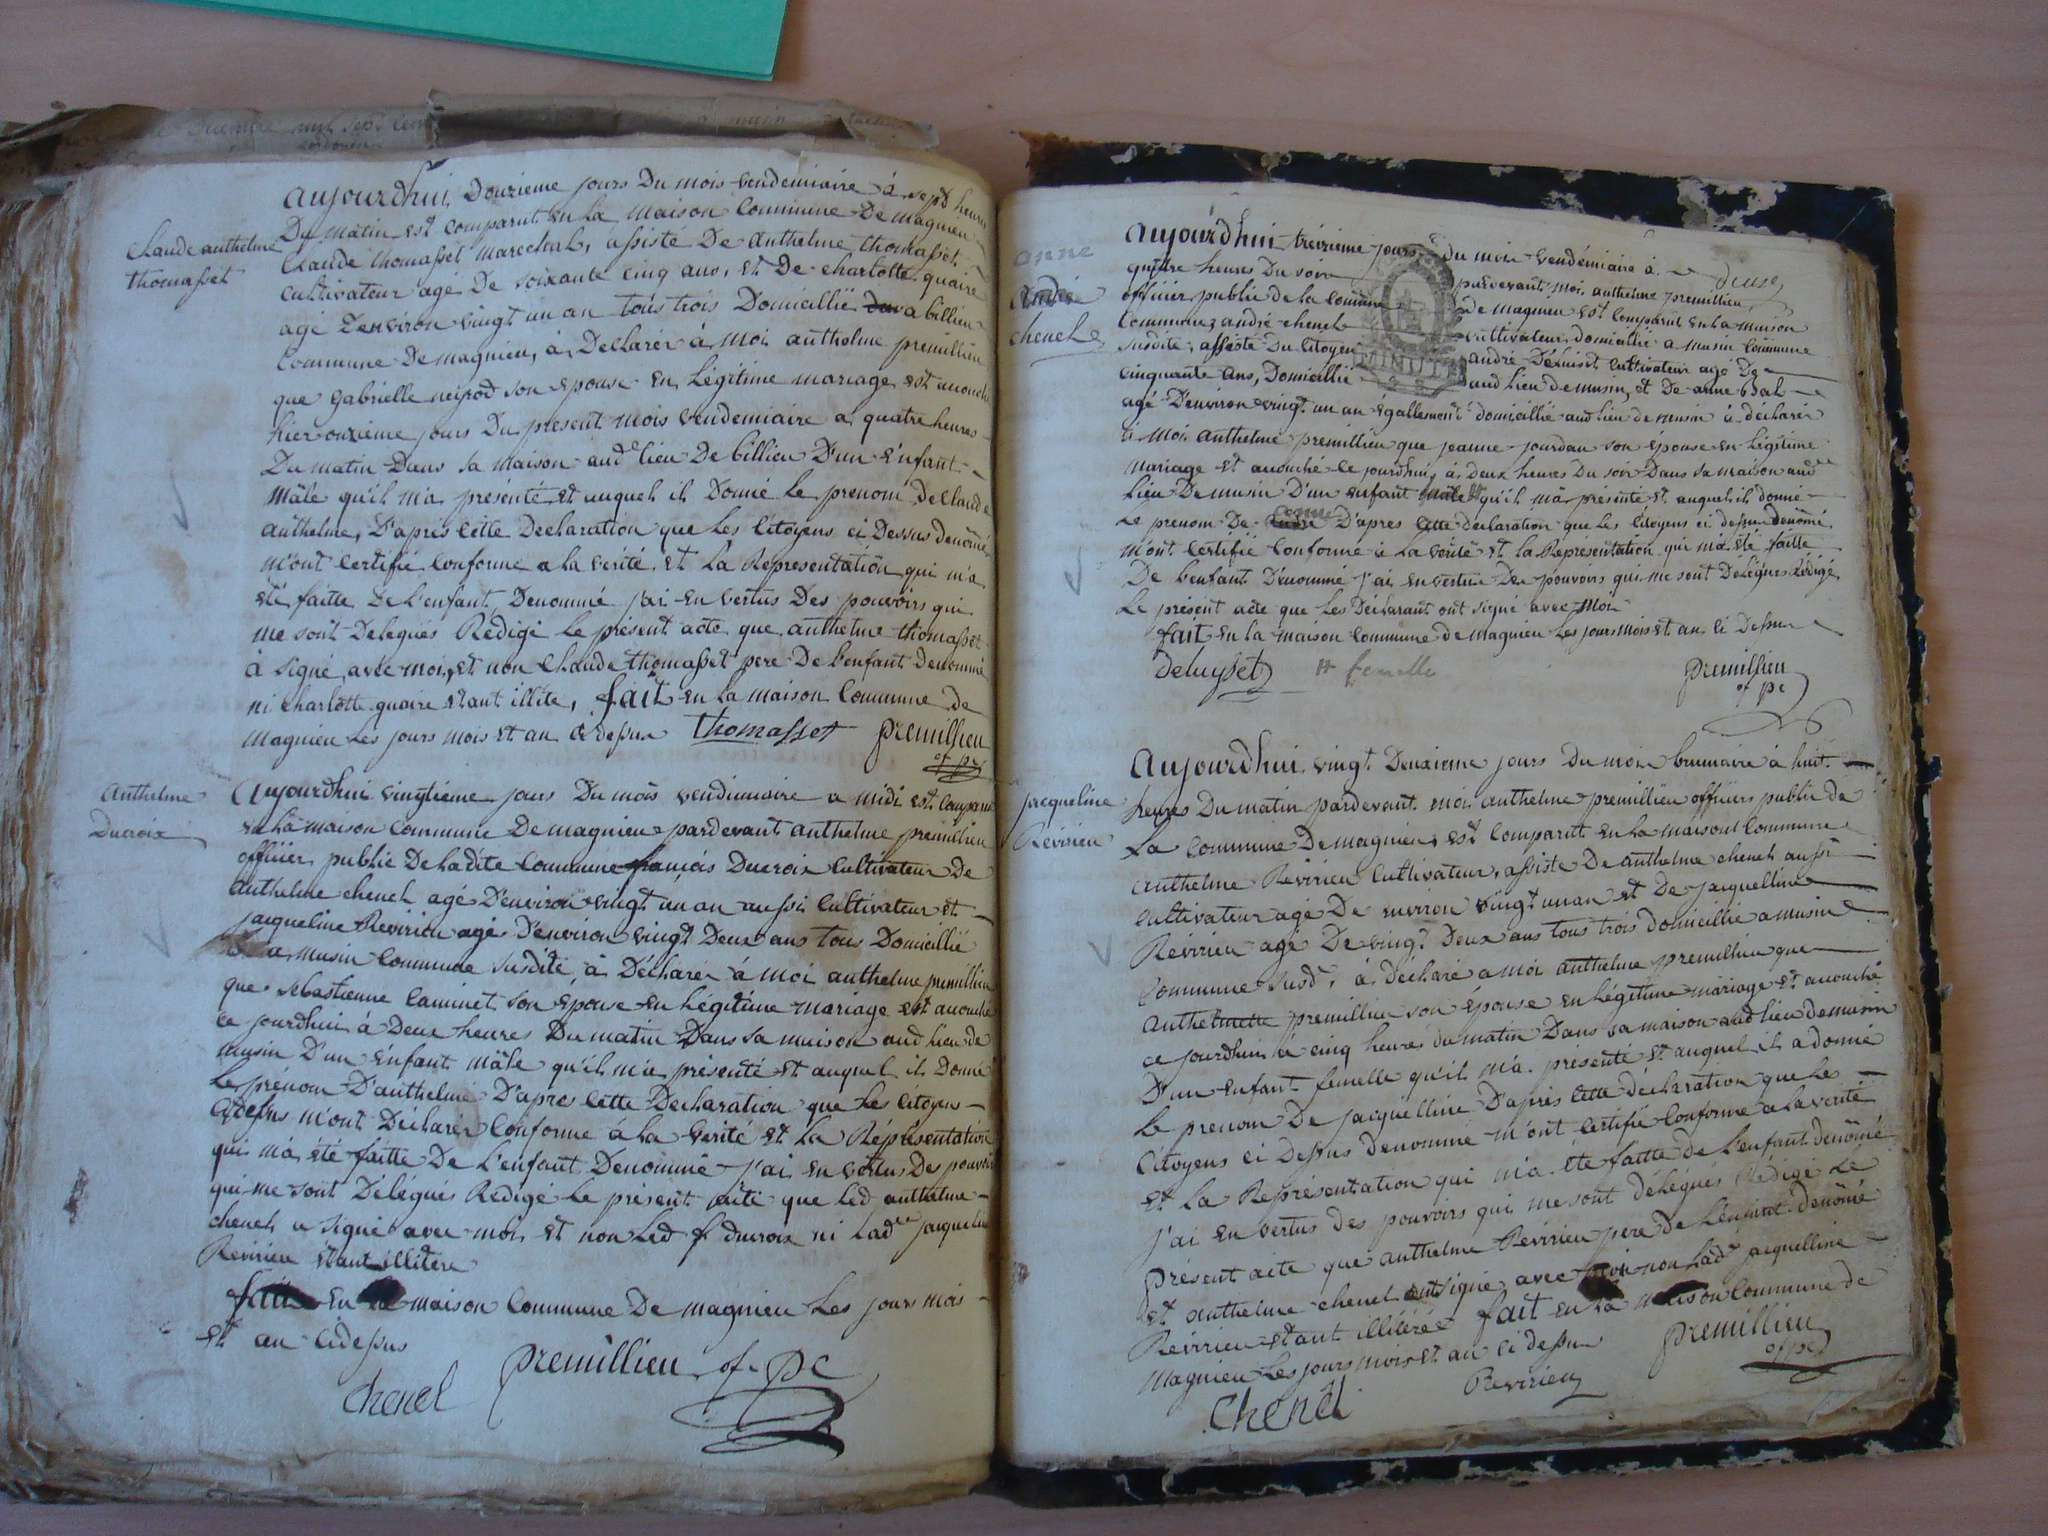 Claude anthelme
thomasset
aujourdhui Douzieme jours Du mois vendemiaire à sept heures
Du matin est comparut en la maison Commune De magnieu
Claude thomasset marechal, assisté De anthelme thomasset
cultivateur agé De soixante cinq ans, et De charlotte quaire
agé denviron vingt un an tous trois Domicillié a billieu
Commune De magnieu, à Declarér à Moi anthelme premillieu
que gabrielle neyrod son epouse en Légitime mariage est acouché
hier onzieme jours Du present mois vendemiaire a quatre heures
Du matin Dans sa maison aud lieu De billieu D'un enfant
mâle qu'il m'a présenté et auquel il Donné Le prenom De Claude
anthelme, D'apres Cette Declaration que Les Citoyens ci Dessus denomé
m'ont Certifié Conforme a la vérité et La Representation qui m'a
été faitte De L'enfant Denommé j'ai en vertus Des pouvoirs qui
me sont Delegués Redigé Le présent acte que anthelme thomasset
à Signé avec moi, et non Claude thomasset pere De L'enfant Denommé
ni charlotte quaire etant illite, fait en La maison Commune de
Magnieu Les jours mois et an ci dessus thomasset premillieu
of pc
Anthelme
Ducroix
aujourdhui vingtieme jours Du mois vendimiaire a midi est Comparu
en La maison Commune De magnieu pardevant anthelme premillieu
officier public De Ladite Commune francois Ducroix Cultivateur De
anthelme chenel agé D'environ vingt un an aussi Cultivateur et
jacqueline Revirieu agés D'environ vingt Deux ans tous Domicillié
musin Commune Susdite à Déclarér à moi anthelme premillieu
que Sebastienne Caminet son épouse en Légitime mariage est acouché
ce jourdhui à Deux heures Du matin Dans sa maison aud Lieu de
musin D'un énfant mâle qu'il m'a présenté et auquel il Donné
Le prénom D'anthelme D'apres Cette Declaration que Les Citoyens
Cidessus m'ont Déclarér Conforme à La Verité et La Répresentation
qui m'a été faitte De L'enfant Denommé j'ai en vertus Des pouvoirs
qui me sont Délégués Redigé Le présent acte que Led anthelme
chenel a signé avec moi et non Led f ducroix ni Lade jacqueline
Revirieu etant illitére
fait en la maison Commune De magnieu Les jours mois
et an cidessus
Chenel premillieu of pc
anne
andré
chenel
aujourdhui treizieme jours du mois vendémiaire à
quatre heures Du soir pardevant moi anthelme premillieu
officier public de la Comune De magnieu est Comparut en La maison
Commune andré chenel Cultivateur domicillié a musin Commune
Susdite assisté Du Citoyen andré Deluiset Cultivateur agé De
Cinquante ans, Domicillié aud Lieu de musin, et De anne
MINUTE
agé D'environ vingt un an égallement domicillié aud lieu de musin à déclarér
à Moi anthelme premillieu que jeanne jourdan son épouse en Légitime
mariage et acouché ce jourdhui, à Deux heures Du soir Dans sa maison aud
Lieu De musin D'un enfant mâle qu'il m'a présenté et auquel il donné
Le prenom De anne D'apres Cette déclaration que Les Citoyens ci dessus denomé
m'ont Certifié Conforme à la vérité et la Représentation qui m'a été faitte
De L'enfant Dénommé j'ai en vertu Des pouvoirs qui me sont Delégues Rédigé
Le présent acte que Les Déclarant ont signé avec Moi
fait en la maison Commune de magnieu Les jours mois et an ci Dessus
deluyset # femelle premillieu
of pc
jacqueline
Revirieu
Aujourdhui vingt Deuxieme jours Du mois brumaire à huit
heures Du matin pardevant moi anthelme premillieu officier public de
La Commune De magnieu est Comparut en La maison Commune
anthelme Revirieu Cultivateur, assisté De anthelme chenel aussi
cultivateur agé De environ vingt un an et De jacquelline
Revirieu agé De vingt Deux ans tous trois domicillié a musin
Commune susd, à déclaré a moi anthelme premillieu que
anthelmette premillieu son épouse en Légitime mariage et acouché
ce jourdhui à cinq heures du matin Dans sa maison aud lieu de musin
D'un enfant femelle qu'il m'a présenté et auquel il a donné
Le prenom De jacquelline D'après Cette déclaration que Les
Citoyens ci Dessus denommé m'ont Certifié Conforme a la vérité
et La Représentation qui m'a été faitte de L'enfant denommé
j'ai en vertus des pouvoirs qui me sont délégués Rédigé Le
présent acte que anthelme Revirieu pere de L'enfant denomé
et anthelme chenel ont signé avec moi non Lade jacquelline
Revirieu etant illitéré fait en La maison Commune de
magnieu Les jours mois et an ci dessus premillieu
Chenel Revirieu of pc